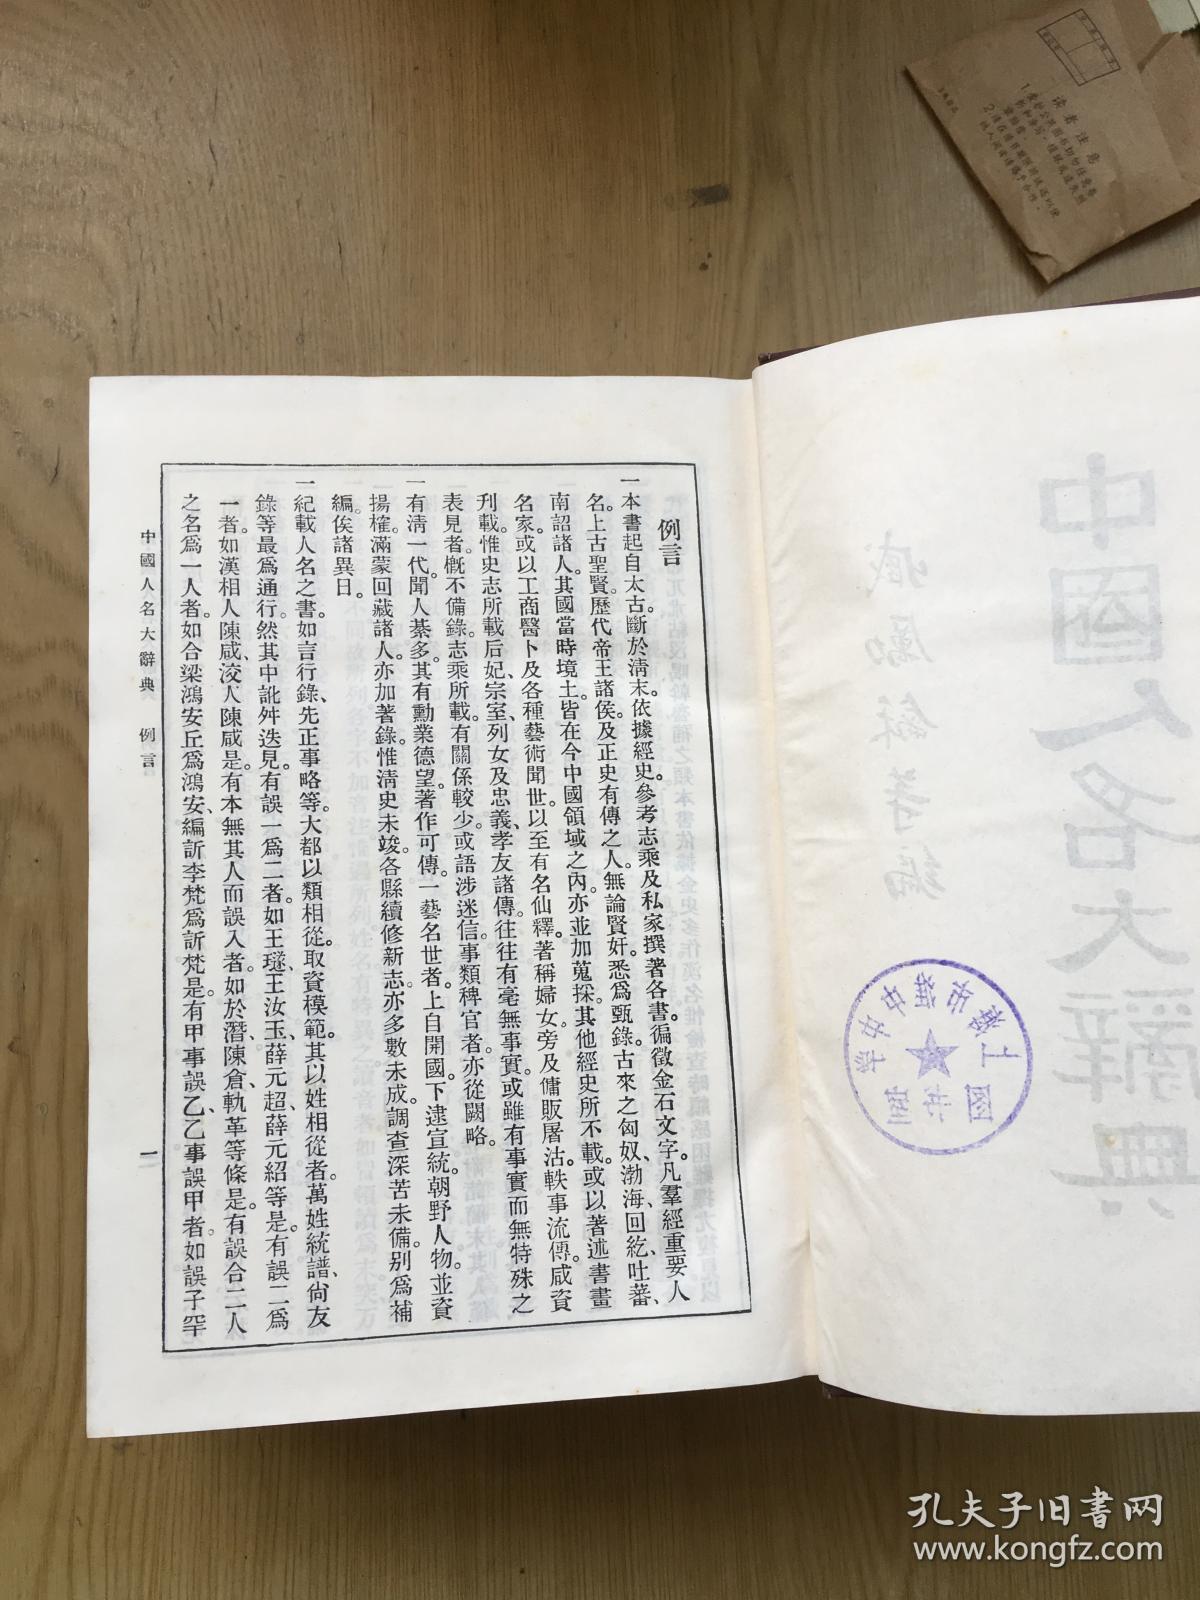 例言
一本書起自太古斷於淸末。依據經史。參考志乘及私家撰著各書。徧徵金石文字。凡羣經重要人
名。上古聖賢。歷代帝王諸侯。及正史有傳之人。無論賢奸。悉爲甄錄。古來之匈奴、渤海、回紇、吐蕃、
南詔諸人。其國當時境土。皆在今中國領域之內。亦並加蒐採。其他經史所不載。或以著述書畫
名家。或以工商醫卜及各種藝術聞世。以至有名仙釋著稱婦女。旁及傭販屠沽。軼事流傳。咸資
刋載。惟史志所載后妃、宗室、列女及忠義、孝友諸傳。往往有毫無事實。或雖有事實而無特殊之
表見者。槪不備錄。志乘所載。有關係較少。或語涉迷信。事類稗官者。亦從闕略。
一有淸一代。聞人綦多。其有勳業德望。著作可傳。一藝名世者。上自開國。下逮宣統。朝野人物。並資
揚榷。滿蒙回藏諸人。亦加著錄。惟淸史未竣。各縣續修新志。亦多數未成。調查深苦未備。別爲補
編。俟諸異日。
一紀載人名之書。如言行錄、先正事略等。大都以類相從。取資模範。其以姓相從者。萬姓統譜、尙友
錄等最爲通行。然其中訛舛迭見。有誤一爲二者。如王璲、王汝玉、薛元超、薛元紹等是。有誤二爲
一者。如漢相人陳咸、洨人陳咸是。有本無其人而誤入者。如於潛、陳倉、軌革等條是。有誤合二人
之名爲一人者。如合梁鴻安丘爲鴻安、編訢李梵爲訢梵是。有甲事誤乙、乙事誤甲者。如誤子罕
中國人名大辭典　例言
一
中國人名大辭典
臧勵龢等編
读者注意
孔夫子旧书网
www.kongfz.com